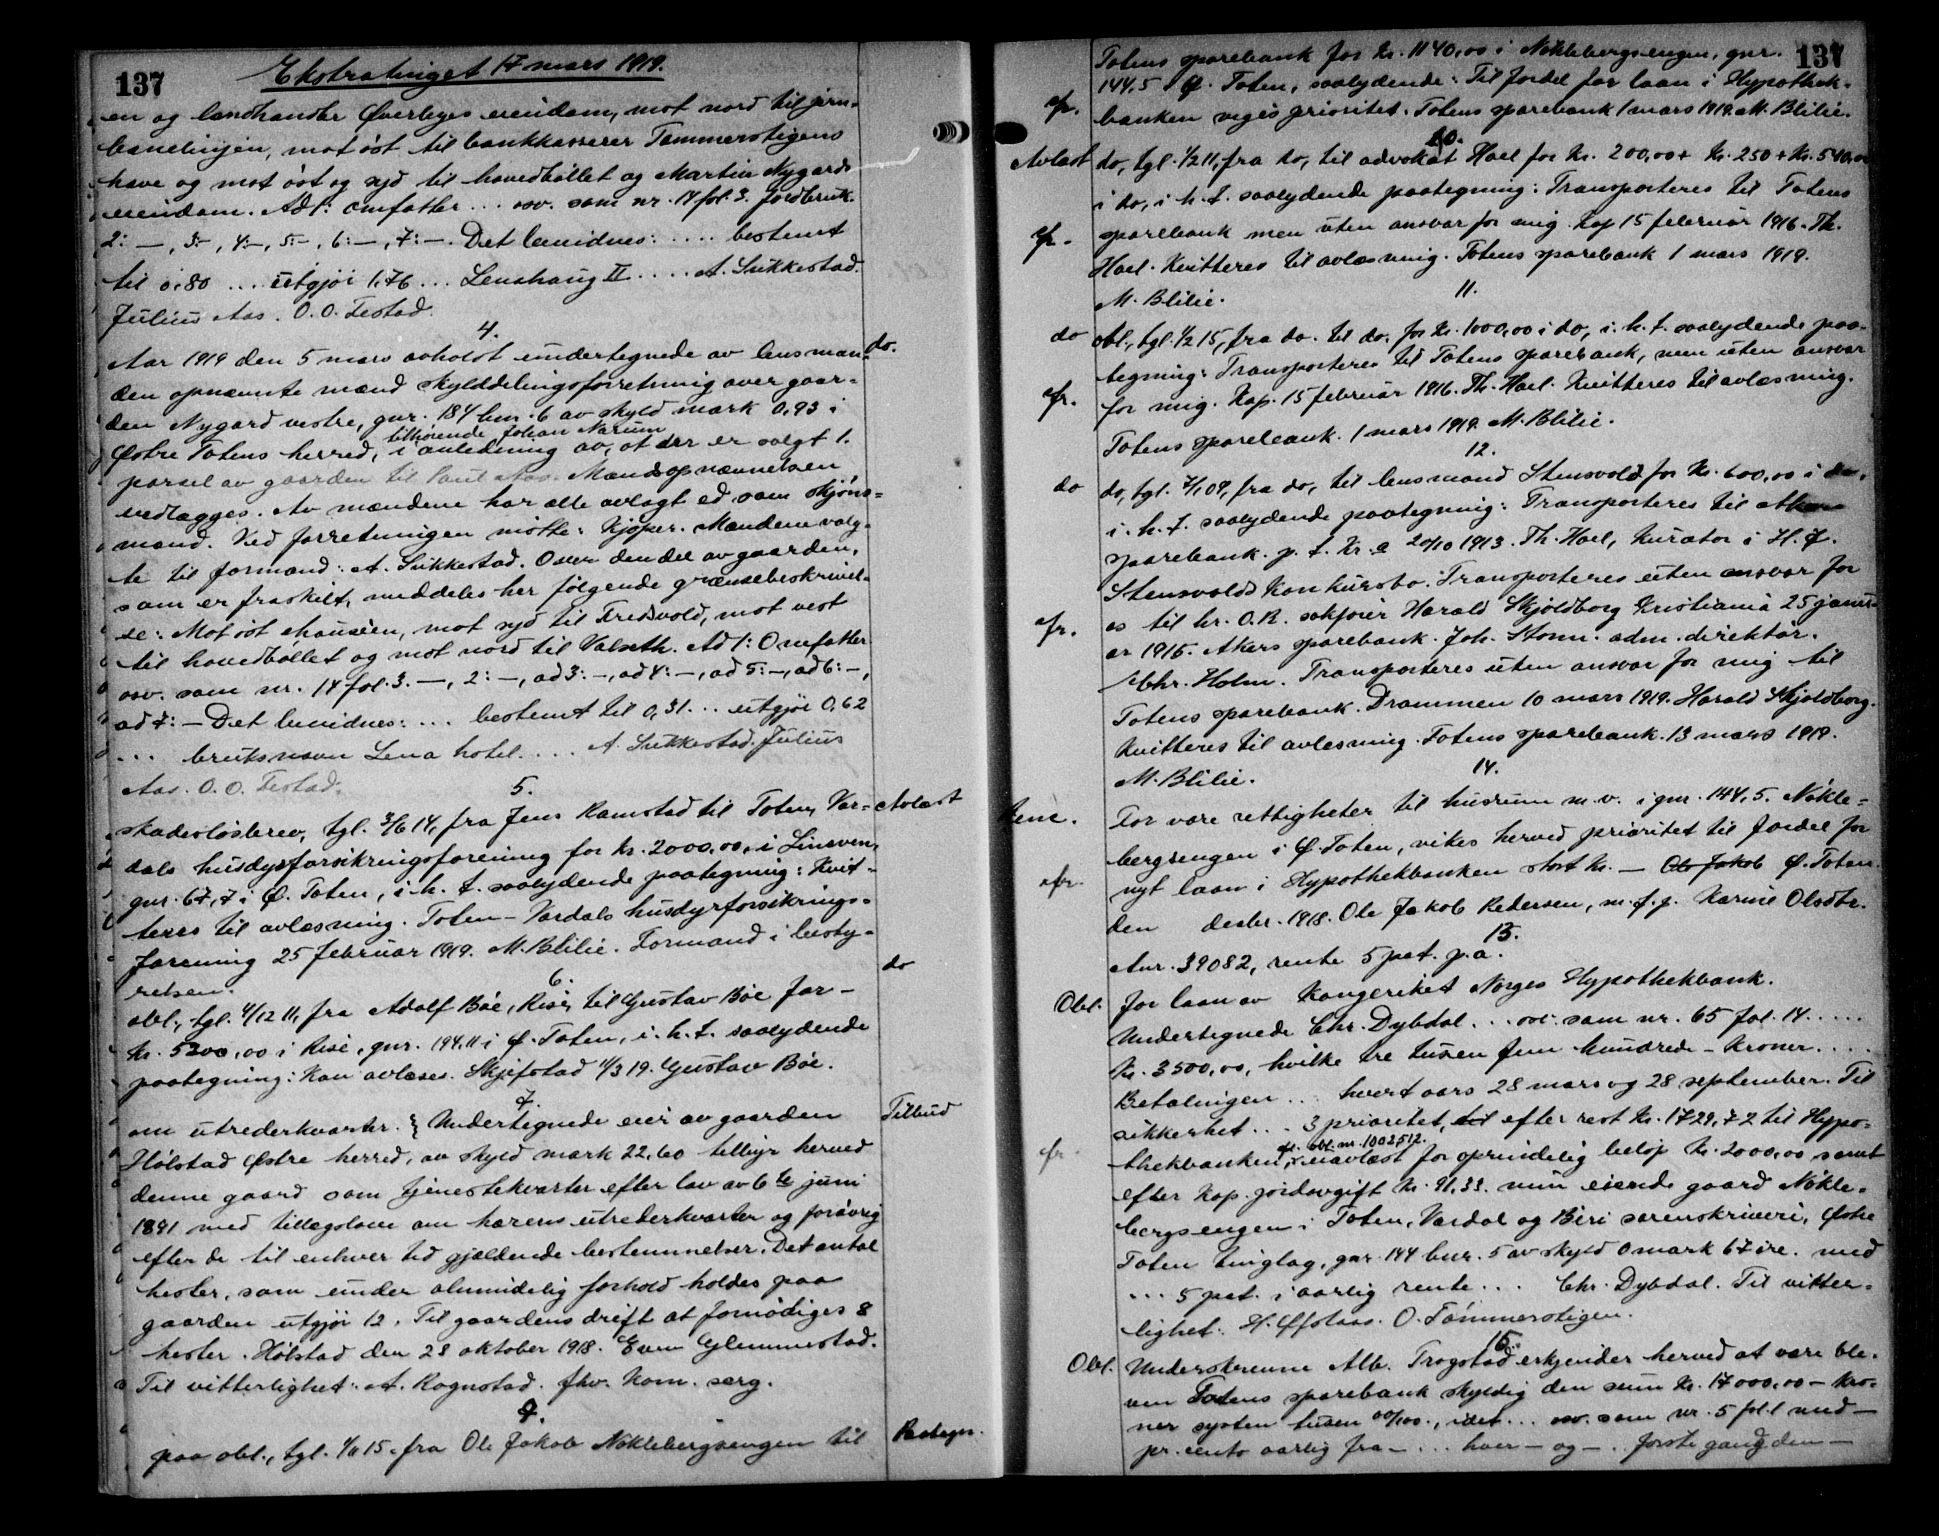 137
Ekstratinget 17 mars 1919.
en og landhandler Øverbyes eiendom, mot nord til jern-
banelinjen, mot øst til bankkasserer Tømmerstigens
have og mot øst og syd til hovedbøllet og Martin Nygards
eiendom. Ad 1: omfatter ... osv. som nr. 17 fol. 3. Jordbruk.
2: —, 3: —, 4: —, 5: —, 6: —, 7: —. Det bevidnes: .... bestemt
til 0,80 ... utgjør 1,76 ... Lenahaug II .... A. Sukkestad.
Julius Aas. O. O. Festad.
4.
do.
Aar 1919 den 5 mars avholdt undertegnede av lensman-
den opnævnte mænd skylddelingsforretning over gaar-
den Nygard vestre, gnr. 184 bnr. 6 av skyld mark 0,93 i
tilhørende Johan Narum
Østre Totens herred, i anledning av, at der er solgt 1.
parsel av gaarden til Paul Aas. Mandsopnævnelsen
vedlægges. Av mændene har alle avlagt ed som skjøns-
mænd. Ved forretningen møtte: Kjøper. Mændene valg-
te til formand: A. Sukkestad. Over den del av gaarden,
som er fraskilt, meddeles her følgende grænsebeskrivel-
se: Mot øst chausséen, mot syd til Fredsvold, mot vest
til hovedbøllet og mot nord til Valseth. Ad 1: Omfatter
osv. som nr. 14 fol. 3. —, 2: —, ad 3: —, ad 4: —, ad 5: —, ad 6: —,
ad 7: — Det bevidnes: ... bestemt til 0,31 ... utgjør 0,62
... bruksnavn Lena hotel .... A. Sukkestad. Julius
Aas. O. O. Festad.
5.
Avlæst
skadesløsbrev, tgl. 3/6 14, fra Jens Ramstad til Toten, Var-
dals husdyrforsikringsforening for kr. 2000,00, i Linsven,
gnr. 67,7 i Ø. Toten, i. h. t. saalydende paategning: Kvit-
teres til avlæsning. Toten-Vardals husdyrforsikrings-
forening 25 februar 1919. M. Blilie. Formand i besty-
relsen.
6.
do
obl., tgl. 4/12 11, fra Adolf Bøe, Risé, til Gustav Bøe for -
kr. 5200,00 i Risé, gnr. 194,11 i Ø. Toten, i. h. t. saalydende
paategning: Kan avlæses. Skjefstad 11/3 19. Gustav Bøe.
7.
Tilbud
om utrederkvarter. Undertegnede eier av gaarden
Hølstad Østre herred, av skyld mark 22,60 tilbyr herved
denne gaard som tjenestekvarter efter lov av 6te juni
1891 med tillægslove om hærens utrederkvarter og forøvrig
efter de til enhver tid gjældende bestemmelser. Det antal
hester, som under almindelig forhold holdes paa
gaarden utgjør 12. Til gaardens drift at fornødiges 8
hester. Hølstad den 28 oktober 1918. Even Glemmestad.
Til vitterlighet: A. Rognstad. fhv. Kom. serg.
9.
Paategn.
paa obl., tgl. 1/11 15, fra Ole Jakob Nøklebergsengen til
137
Totens sparebank for kr. 1140,00 i Nøklebergsengen, gnr.
144,5 i Ø. Toten, saalydende: Til fordel for laan i Hypothek-
cfr.
banken viges prioritet. Totens sparebank 1 mars 1919. M. Blilie.
10.
Avlæst
do, tgl. 1/2 11, fra do, til advokat Hoel for kr. 200,00 + kr. 250 + kr. 540,00
i do, i. h. t. saalydende paategning: Transporteres til Totens
cfr.
sparebank men uten ansvar for mig. Kap 15 februar 1916. Th.
Hoel. Kvitteres til avlæsning. Totens sparebank 1 mars 1919.
M. Blilie.
11.
do
obl., tgl. 1/2 15, fra do. til do, for kr. 1000,00 i do, i. h. t. saalydende paa-
tegning: Transporteres til Totens sparebank, men uten ansvar
cfr.
for mig. Kap. 15 februar 1916. Th. Hoel. Kvitteres til avlæsning.
Totens sparebank. 1 mars 1919. M. Blilie.
12.
do
do, tgl. 7/1 09, fra do, til lensmand Stensvold for kr. 600,00 i do,
i. h. t. saalydende paategning: Transporteres til Akers
sparebank. p. t. Kr.a 20/10 1913. Th. Hoel, kurator i H. J.
Stensvolds konkursbo. Transporteres uten ansvar for
cfr.
os til hr. O.R. sakfører Harald Skjoldborg Kristiania 25 janu-
ar 1915. Akers sparebank. Joh. Storm. adm. direktør.
Chr. Holm. Transporteres uten ansvar for mig til
Totens sparebank. Drammen 10 mars 1919. Harald Skjoldborg.
Kvitteres til avlæsning. Totens sparebank. 13 mars 1919.
M. Blilie.
14.
For vore rettigheter til husrum m. v. i gnr. 144,5. Nøkle-
bergsengen i Ø. Toten, vikes herved prioritet til fordel for
cfr.
nyt laan i Hypothekbanken stort kr. — Ole Jakob Ø. Toten
den desbr. 1918. Ole Jakob Pedersen, m. f. p. Karine Olsdtr.
13.
Anr. 39082, rente 5 pct. p. a.
Obl.
for laan av Kongeriket Norges Hypothekbank.
Undertegnede Chr. Dybdal ... osv. som nr. 65 fol. 14 .....
Kr. 3500,00, hvilke tre tusen fem hundrede - kroner ....
Betalingen ... hvert aars 28 mars og 28 september. Til
sikkerhet ... 3 prioritet, til efter rest kr. 1729,72 til Hypo-
cfr.
obl. nr. 1002512.
thekbanken, uavlæst for oprindelig beløp kr. 2000,00 samt
efter kap. jordavgift kr. 91,33. min eiende gaard Nøkle-
bergsengen i Toten, Vardal og Biri sorenskriveri, Østre
Toten tinglag, gnr. 144 bnr. 5 av skyld 0 mark 67 øre. med
... 5 pct. i aarlig rente ... Chr. Dybdal. Til vitter-
lighet: O. Tømmerstigen.
15.
Obl.
Underskrevne Alb. Trogstad erkjender herved at være ble-
ven Totens sparebank skyldig den sum kr. 17000,00 - kro-
ner sytten tusen 00/100., idet ... osv. som nr. 5 fol. 1 med —
pr. cento aarlig fra — ... hver — og — .. første gang den —